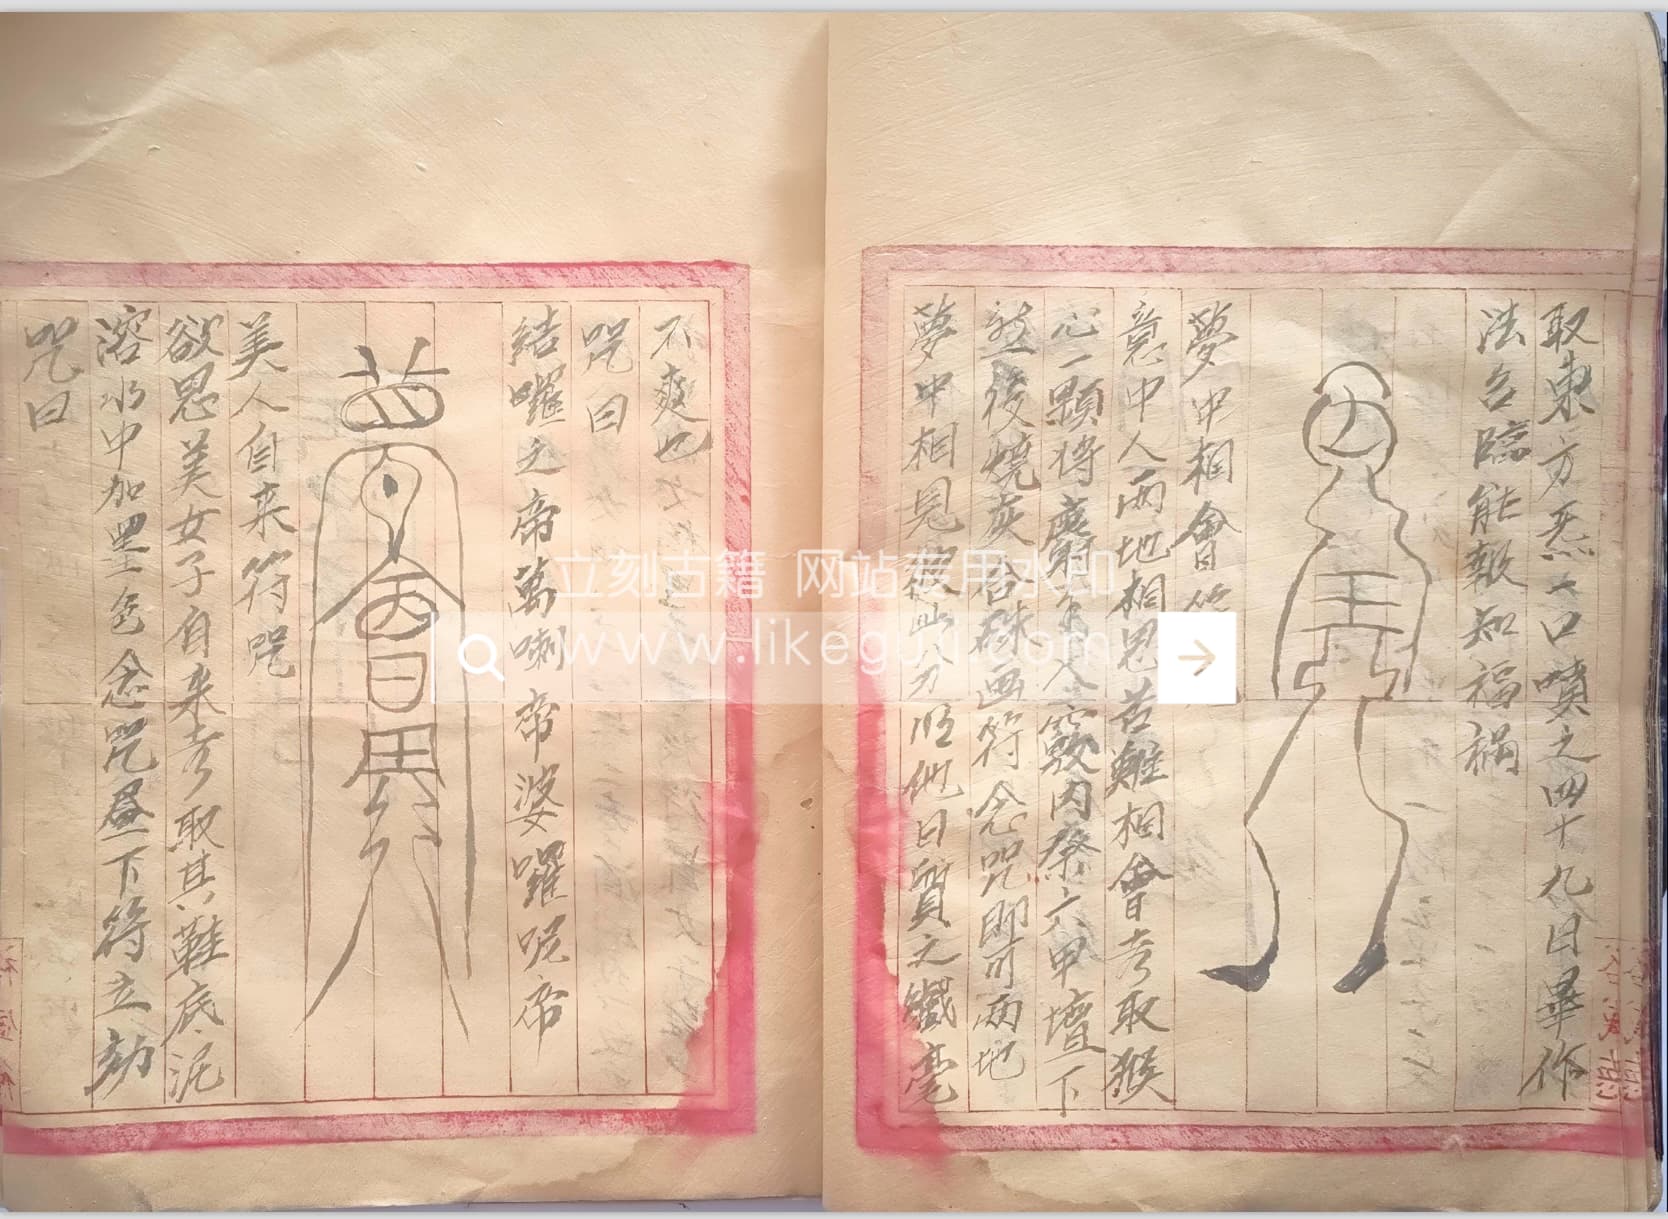 取東方炁一口噴之四十九日畢作
法名臨能報知福禍
夢中相會
意中人兩地相思苦難相會者取猴
心一顆將麝香入竅內祭六甲壇下
然後燒灰合硃畫符念咒即可兩地
夢中相見 他日質之纖毫
不爽也
咒曰
結囉之帝萬喇帝婆囉呢帝
美人自来符咒
欲思美女子自来者取其鞋底泥
溶水中加墨色念咒畫下符立効
咒曰
立刻古籍 网站专用水印
www.likeguji.com